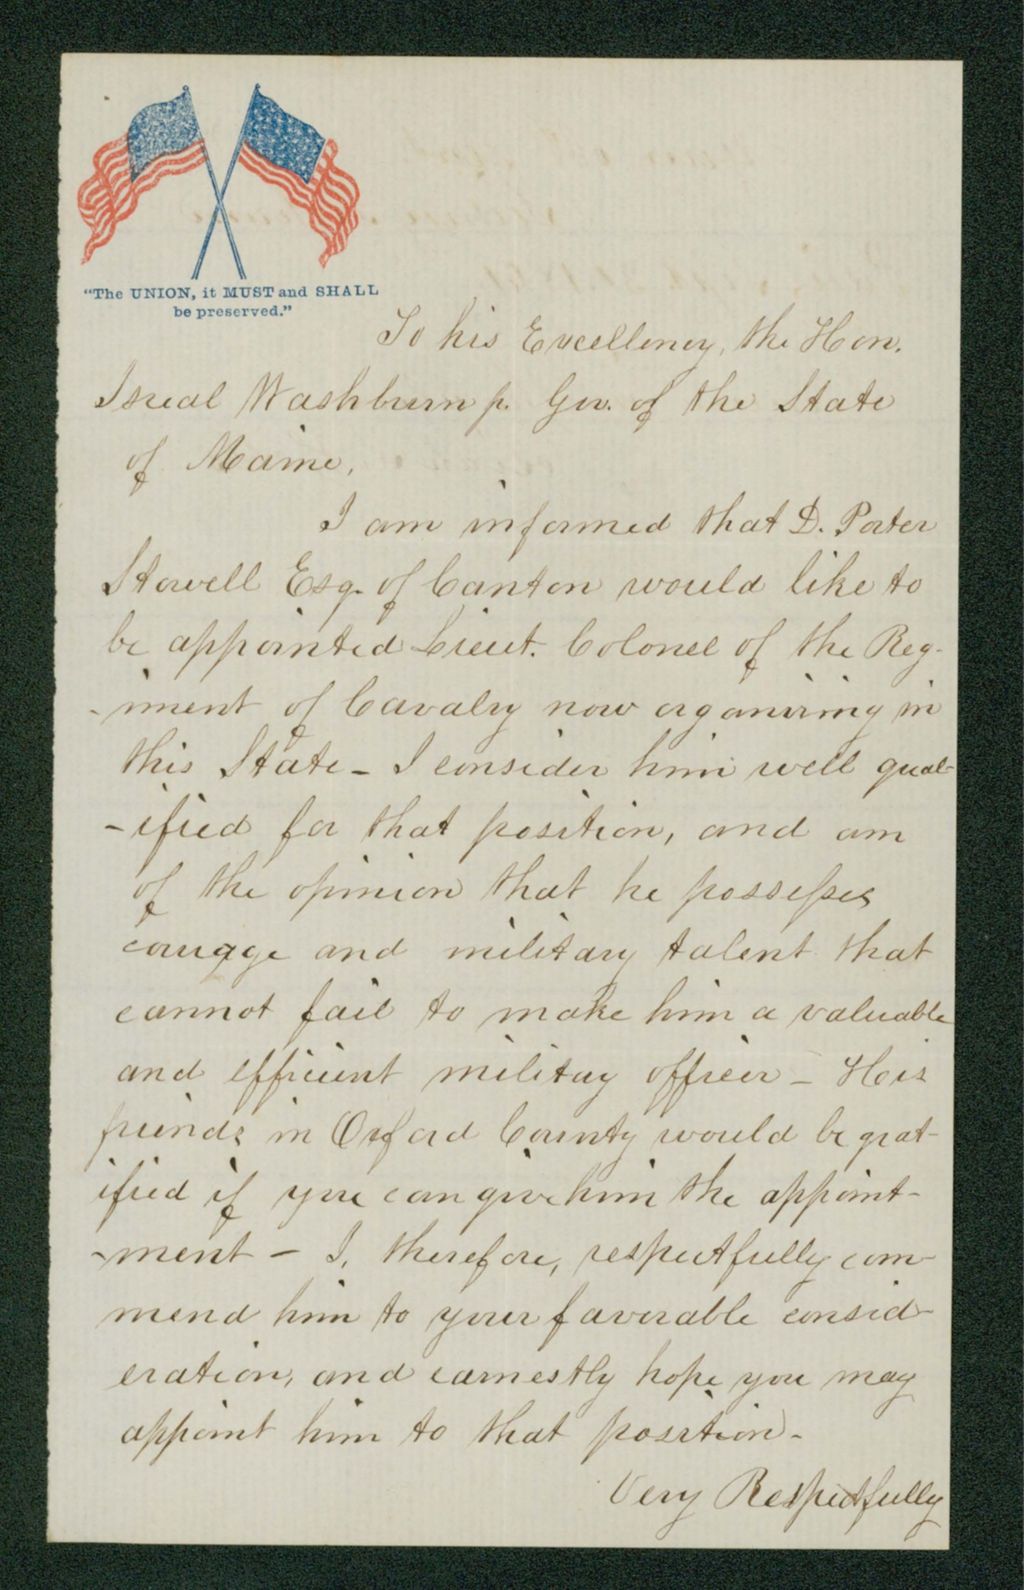 "The UNION, it MUST and SHALL
be preserved."
To his Excellency, the Hon.
Isreal Washburn jr. Gov. of the State
of Maine,
I am informed that D. Porter
Stowell Esq. of Canton would like to
be appointed Lieut. Colonel of the Reg-
-iment of Cavalry now organizing in
this State - I consider him well qual-
-ified for that position, and am
of the opinion that he possesses
courage and military talent that
cannot fail to make him a valuable
and efficient military officer - His
friends in Oxford County would be grat-
ified if you can give him the appoint-
-ment - I, therefore, respectfully com-
mend him to your favorable consid-
eration, and earnestly hope you may
appoint him to that position -
Very Respectfully